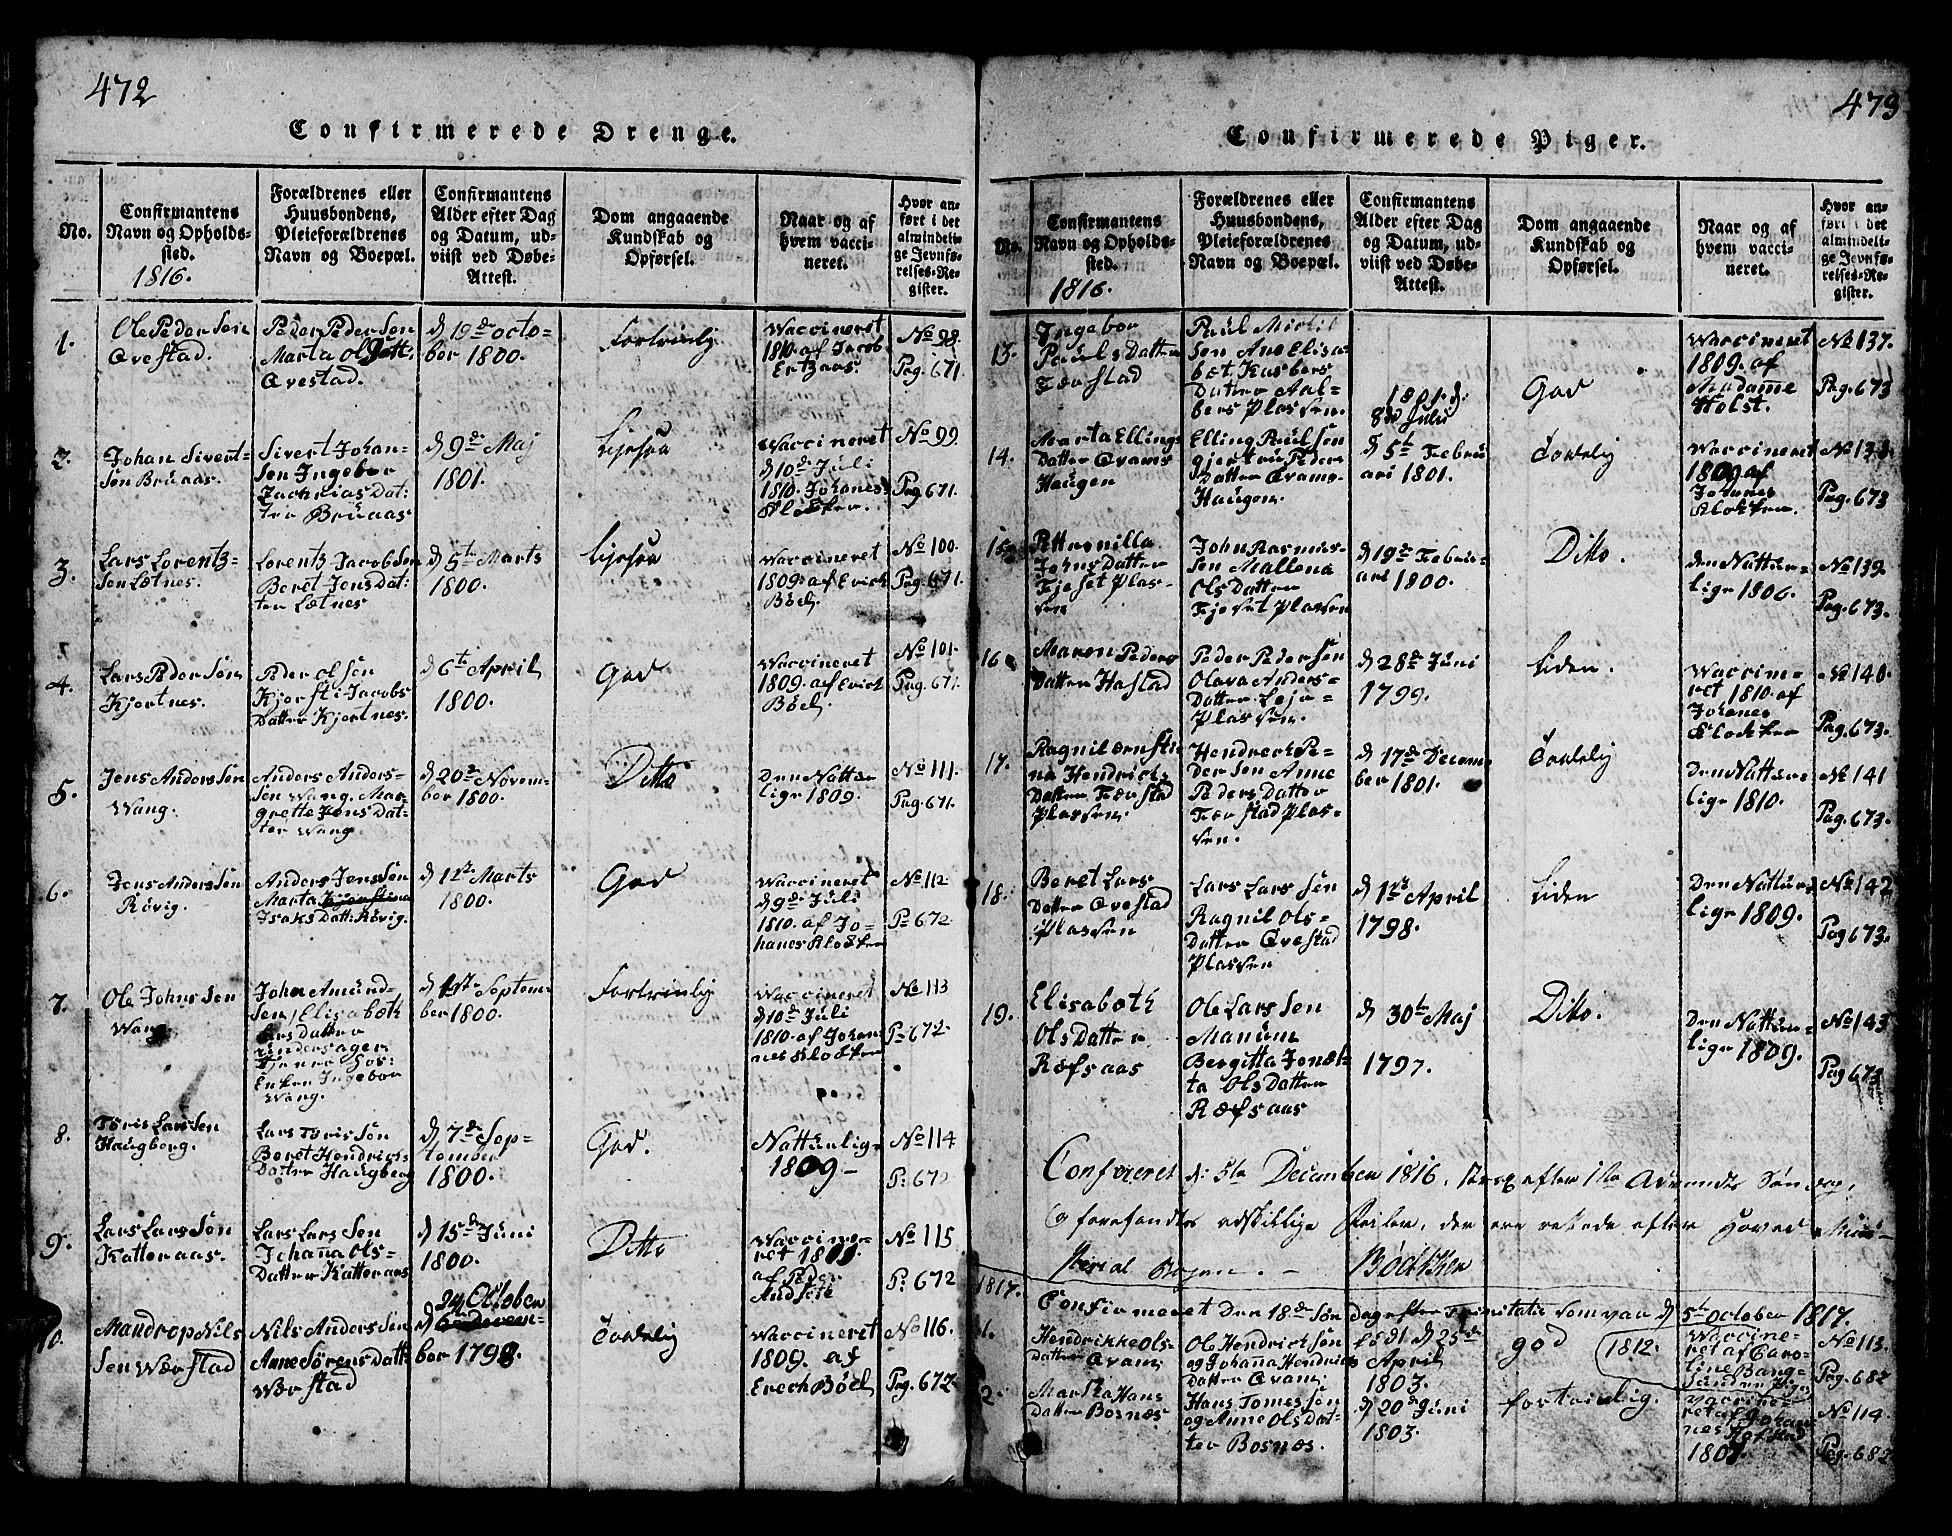 472
Confirmerede Drenge.
No.
Confirmantens
Navn og Opholds-
sted.
1816.
Forældrenes eller
Huusbondens,
Pleieforældrenes
Navn og Boepæl.
Confirmantens
Alder efter Dag
og Datum, ud-
viist ved Døbe-
Attest.
Dom angaaende
Kundskab og
Opførsel.
Naar og af
hvem vacci-
neret.
Hvor an-
ført i det
almindeli-
ge Jevnfø-
relses-Re-
gister.
1.
Ole Peder Søn
Qvestad.
Peder Peder Søn
Marta Ols Datt:
Qvestad.
d 19de octo-
ber 1800.
Fortrinlig
Waccineret
1810. af Jacob
Ertzaas.
No 98.
Pag. 671.
2.
Johan Sivert-
Sen Bruaas.
Sivert Johan-
Sen Ingebor
Zachrias Dat:
ter Bruaas
d 9de Maj
1801.
Waccineret
d 10de Juli
1810. Johanes
Klokker.
No 99
Pag 671.
3.
Lars Lorentz-
Sen Lætnes.
Lorentz Jacob Sen
Beret Jens Dat:
ter Lætnes
d 5te Marts
1800.
Waccineret
1809. af Erich
Böel.
No 100.
Pag. 671.
4.
Lars Peder Sön
Kjortnes.
Peder Ol Sön
Kjersti Jacobs
Datter Kjortnes.
d 6te April
1800.
God
Waccineret
1809. af Erich
Böel.
No 101.
Pag. 671.
5.
Jens Anders Sön
Wang.
Anders Anders-
Sen Wang. Mar-
grette Jens Dat-
ter Wang
d 20de Novem-
ber 1800.
Ditto
Den Nattur
lige 1809.
No 111.
Pag. 671.
6.
Jens Anders Sön
Rövig.
Anders Jens Sön
Marta
Isaks Datt. Rövig.
d 12te Marts
1800.
God
Waccineret
d 9de Juli
1810. af Jo-
hanes Klokker
No 112
P= 672
7.
Ole Johns Sön
Wang
John Amund-
Sen, Elisabeth
Lars Datter
tjener hos:
Enken Ingebor
Wang.
d 1ste Septem
ber 1800.
Fortrinlig
Waccineret
d 10de Juli
1810. af Johan
nes Klokker
No 113
P: 672.
8.
Toris Lars Sen
Haugberg.
Lars Toris Sön
Beret Hendrics
Datter Haugberg
d 7de Sep-
tember
1800.
God.
Natturlige
1809 -
No 114
P: 672
9.
Lars Lars Sön
Katteraas.
Lars Lars Sön
Johana Ols-
Datter Katteraas
d 15de Juni
1800.
Ditto
Waccine-
ret
af Peder
Andsete
No 115
P: 672
10.
Mandrop Nils
Sen Wærstad
Nils Anders Sön
Anne Sörens Datt
Wærstad
24 October
d
ber 1798
Taalelig
Waccineret
1809. af
Erech Böel
No 116.
Pag. 672.
473
Confirmerede Piger.
No.
Confirmantens
Navn og Opholds-
sted.
1816.
Forældrenes eller
Huusbondens,
Pleieforældrenes
Navn og Boepæl.
Confirmantens
Alder efter Dag
og Datum, ud-
viist ved Døbe-
Attest.
Dom angaaende
Kundskab og
Opførsel.
Naar og af
hvem vacci-
neret.
Hvor an-
ført i det
almindeli-
ge Jevnfø-
relses-Re-
gister.
13.
Ingebor
Pauls Datter
Paul Mickil
Sen Ane Elisa-
bet Kasbers
Datter Aal-
bers Plassen.
1801. d.
8de Julii
God
Waccineret
1809. af
Madamme
Holst.
No 137.
Pag. 673
14.
Marta Ellings
Datter Qvams
Haugen
Elling Paul Sön
Gjertru Peder
Datter Qvams
Haugen.
d 5te Febru
ari 1801.
Taalelig
Waccineret
1809 af
Johanes
Klokker.
No 138.
Pag. 673
15.
Petternilla
Johns Datter
Fjeset Plas-
sen
John Rasmus-
Sen Mallena
Ols Datter
Fjeset Plassen
d 19de Febru-
ari 1800.
Ditto.
den Nattur-
lige 1806.
No 139.
Pag. 673.
16.
Maren Peders
Datter Hastad
Peder Peder Sön
Olava Anders-
Datter
Plassen.
d 28de Juni
1799.
Liden.
Waccine-
ret 1810. af
Johanes
Klokker
No 140.
Pag. 673.
17.
Ragnil ærnsti
na Hendrichs
Datter
Plassen.
Hendrech Pe-
der Sen Anne
Peders Datter
d 17de Decem
ber 1801.
Taalelig
Den Nattur-
lige 1810.
No 141
Pag. 673.
18.
Beret Lars
Datter Qvestad
Plassen
Lars Lars Sön
Ragnil Ols-
Datter Qvestad
Plassen
d 1ste April
1798.
Liden
Den Nattur
lige 1809.
No 142
Pag 673.
19.
Elisabeth
Ols Datter
Ræfsaas
Ole Lars Sön
Manum
Bergitta Jonæt-
ta Ols Datter
Ræfsaas
d 30te Maj
1797.
Ditto.
Den Nattur-
lige 1809.
No 143
Pag 673
d: 5te December 1816,
efter 1ste Advendts Söndag,
og forefandtes adskillige Feiler, der ere rettede efter Hoved Mini-
sterial Bogen. -
Bödtkker
1817.
Confirmeret Den 18de Søn Dag efter Trinitatis som var d 5te October 1817.
1.
Hendrikke Ols
datter Qvam
Ole Hendrich Sön
og Johanna Hendrics
Datter Qvam:
född d 25de
April
1803.
god
1812.
Waccine-
ret af Caro-
line Bang-
No 113.
Pag. 682
2.
Martha Hans
datter Bosnæs
Hans Tomes Søn
og Anne Ols Dat-
ter Bosnæs.
d 20de Juni
1803.
fortrinlig.
Vaccine-
ret af Johan-
nes
No 114.
Pag. 682